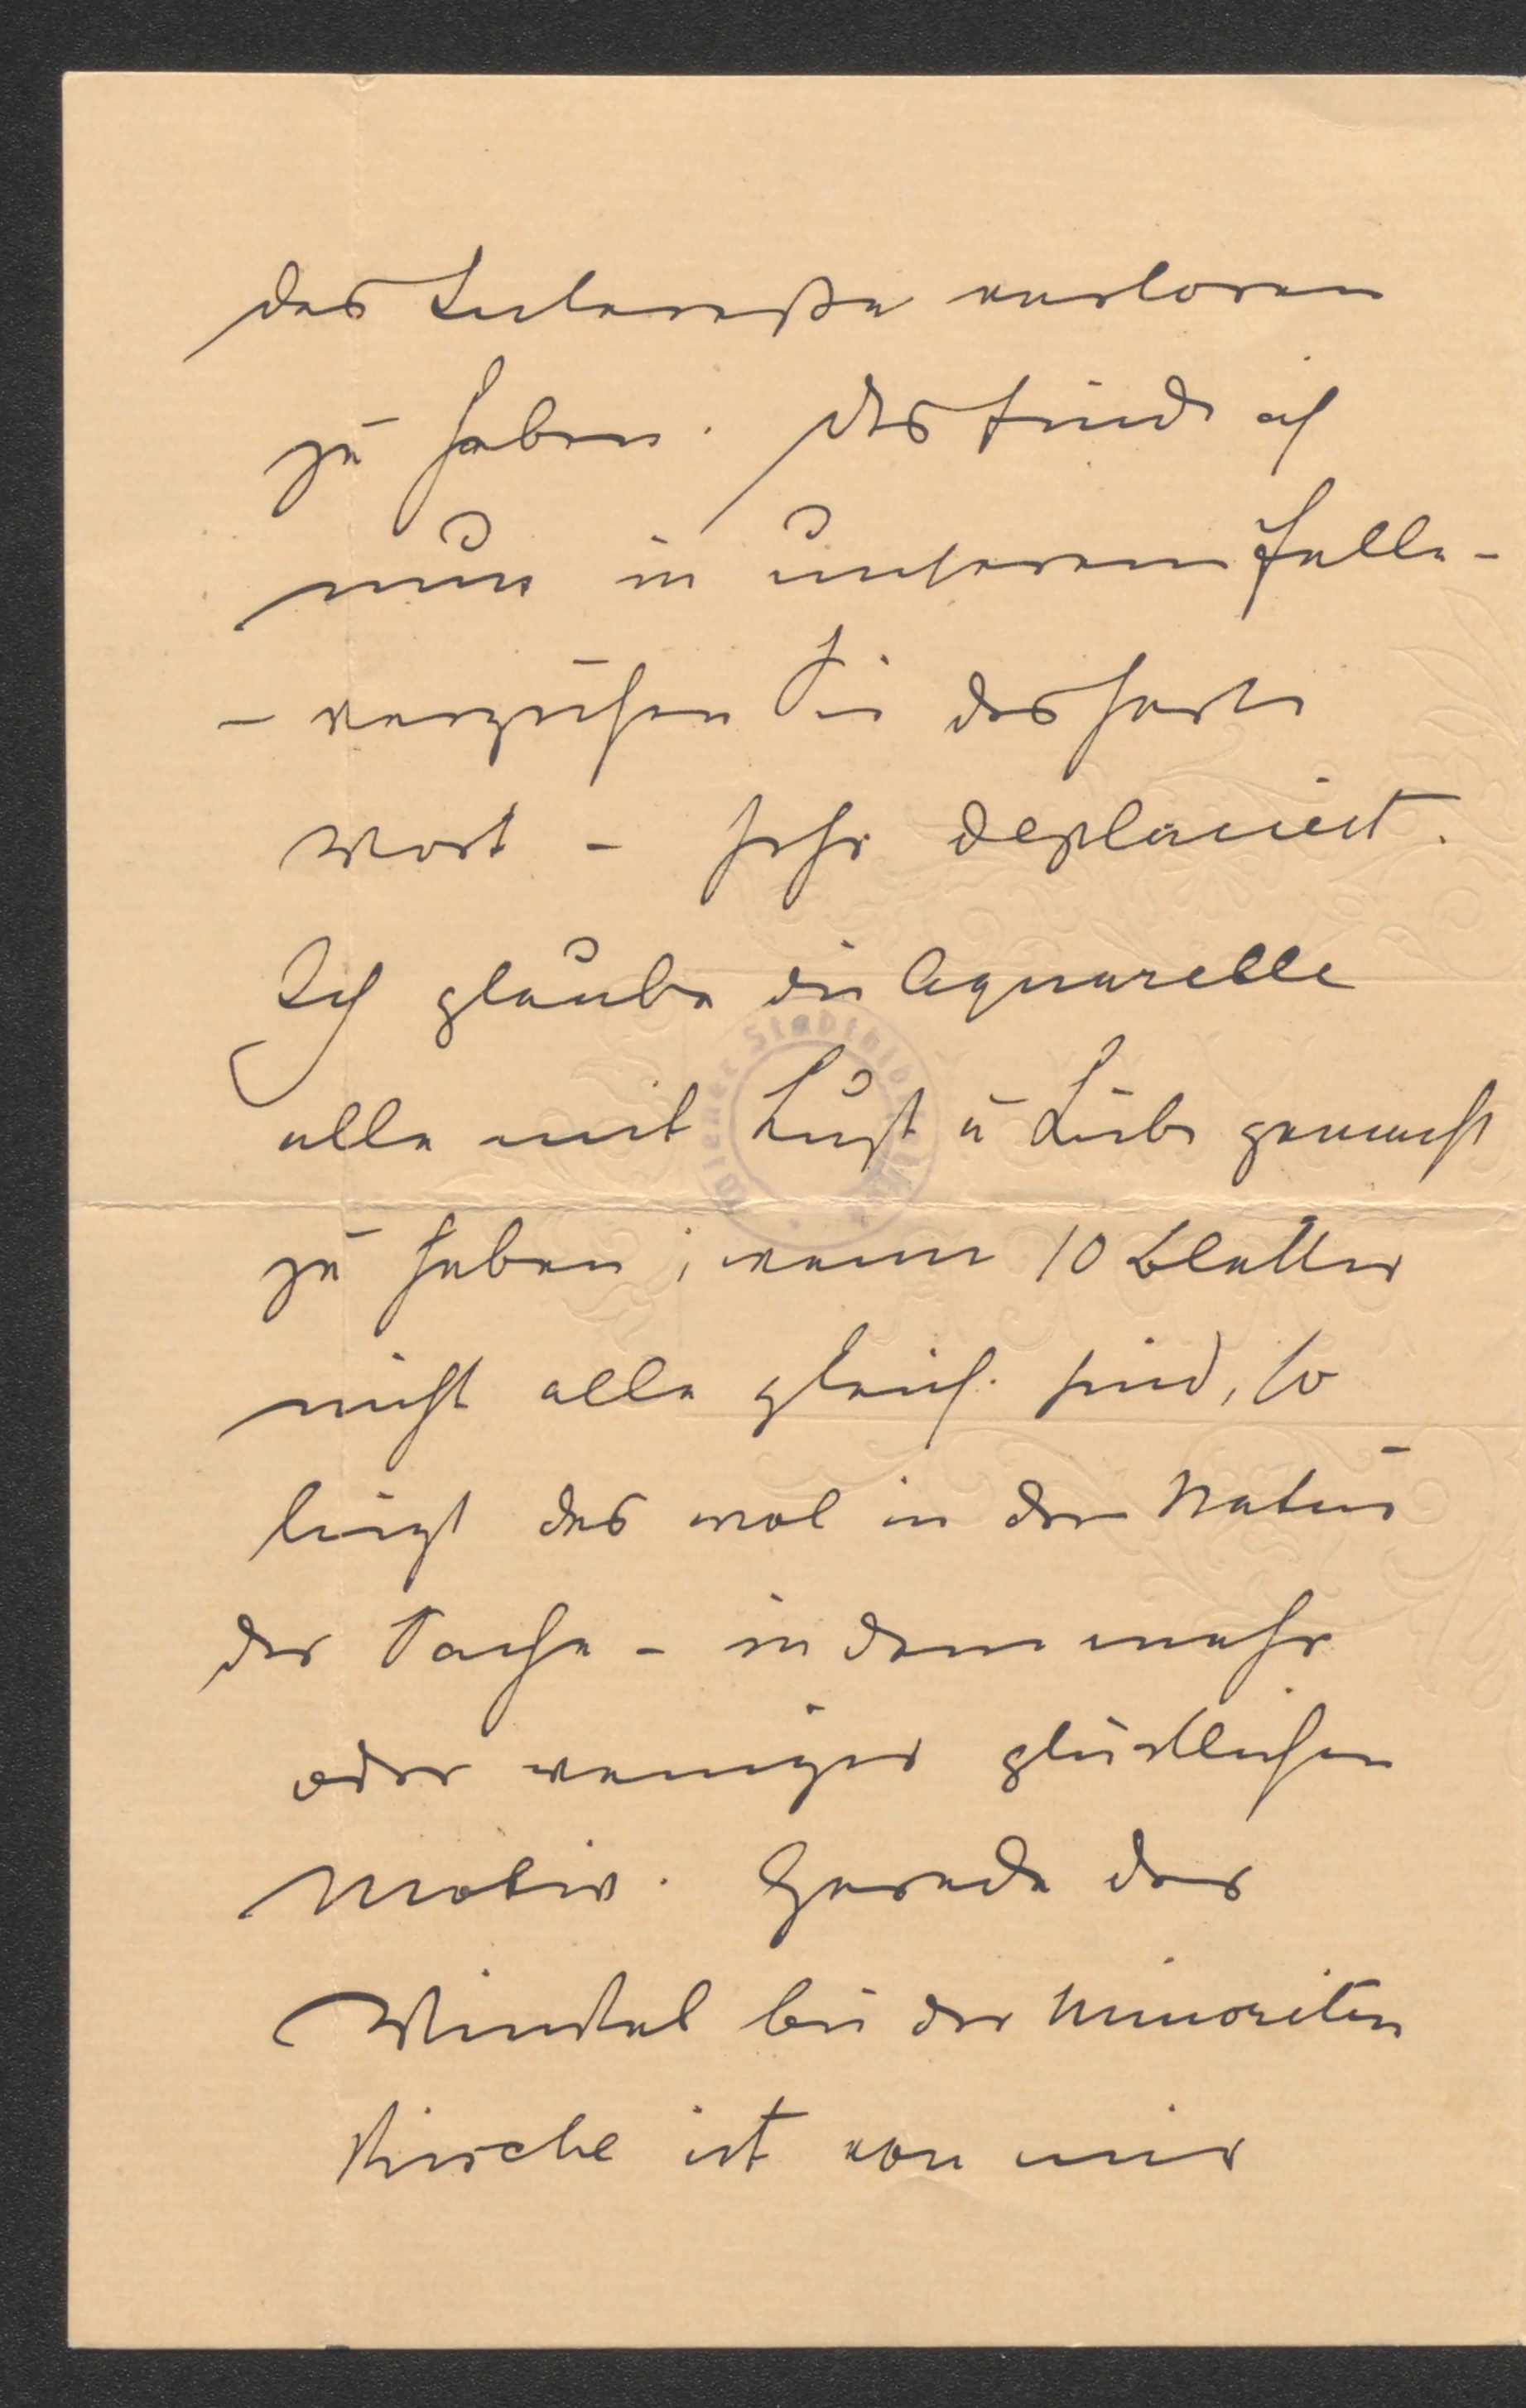 das Interesse verloren
zu haben. Das finde ich
nun in unserem Falle –
– verzeihen Sie das harte
Wort – sehr deplaciert.
Ich glaube die Aquarelle
alle mit Lust u Liebe gemacht
zu haben; wenn 10 Blätter
nicht alle gleich sind, so
liegt das wol in der Natur
der Sache – in dem mehr
oder weniger glücklichen
Motiv. Gerade das
Winkel bei der Minoriten
Kirche ist von mir
Wiener Stadtbibliothek